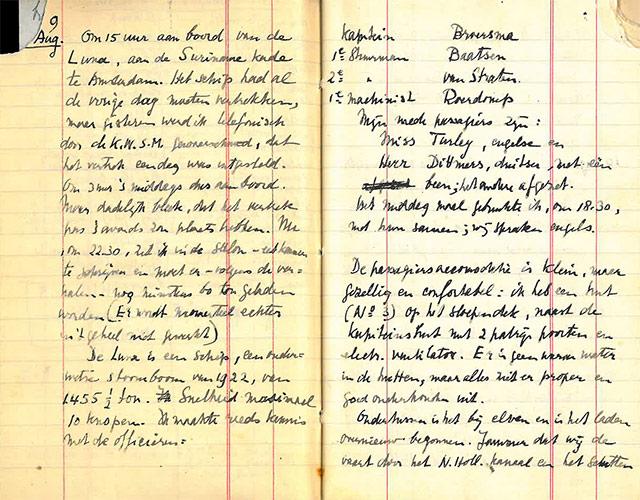 9
Aug. Om 15 uur aan boord van de
Luna, aan de Surinamekade
te Amsterdam. Het schip had al
de vorige dag moeten vertrekken,
maar gisteren werd ik telefonisch
door de K.N.S.M. gewaarschuwd, dat
het vertrek een dag was uitgesteld.
Om 3 uur 's middags dus aan boord.
Maar dadelijk bleek, dat het vertrek
pas 's avonds zou plaats hebben. Nu
, om 22.30, zit ik in de salon
te schrijven en moet er – volgens de ver-
halen – nog minstens 60 ton geladen
worden (Er wordt momenteel echter
in 't geheel niet gewerkt)
De Luna is een schip, een onder-
stoomboom van 1922, van
1455 ½ ton. Snelheid maximaal
10 knopen. Ik maakte reeds kennis
met de officieren =
Kapitein Broersma
1e Stuurman Baatsen
2e " van Straten.
1e machinist Roerdomp
Mijn mede passagiers zijn :
Miss Turley, engelse en
Heer Dittmers, duitser, met één
been; het andere afgezet.
Het middag maal gebruikte ik, om 18.30,
met hun samen; wij spraken engels.
De passagiersaccomodatie is klein, maar
gezellig en confortabel : ik heb een hut
(No 3) op het sloependek, naast de
kapiteinshut met 2 patrijs poorten en
electr. ventilator. Er is geen warm water
in de hutten, maar alles ziet er proper en
goed onderhouden uit.
Ondertussen is het bij elven en is het laden
overnieuw begonnen. Jammer dat wij de
vaart door het N. Holl. kanaal en het